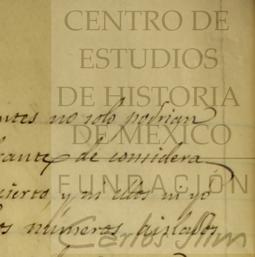 CENTRO DE
ESTUDIOS
DE HISTORIA
DE MÉXICO
FUNDACIÓN
Carlos Slim
ntes no solo podrian
rante de considera
cierto, y ni ellos ni yo
os números aislados